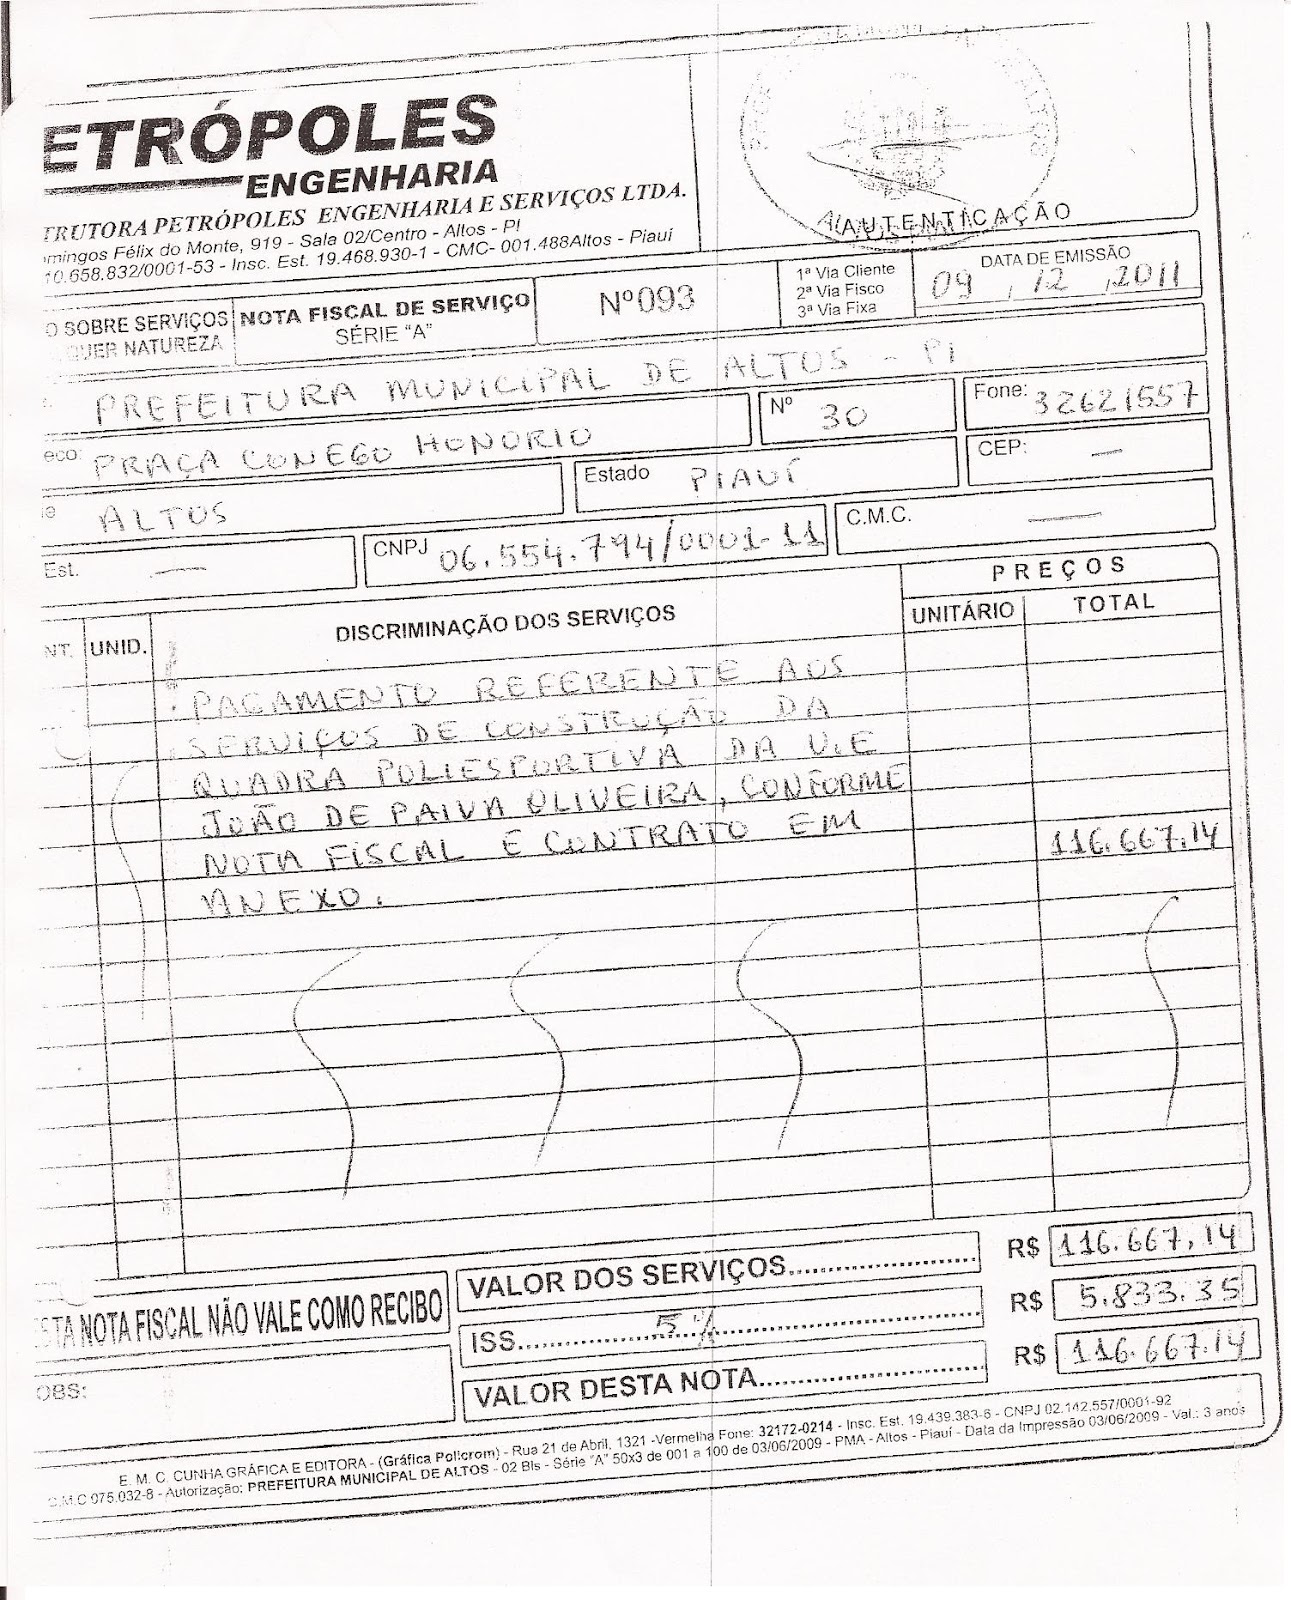 ETRÓPOLES
ENGENHARIA
TRUTORA PETRÓPOLES ENGENHARIA E SERVIÇOS LTDA.
mingos Félix do Monte, 919 - Sala 02/Centro - Altos - PI
10.658.832/0001-53 - Insc. Est. 19.468.930-1 - CMC- 001.488Altos - Piauí
ALTOS
AUTENTICAÇÃO
O SOBRE SERVIÇOS
QUER NATUREZA
NOTA FISCAL DE SERVIÇO
SÉRIE "A"
Nº 093
1ª Via Cliente
2ª Via Fisco
3ª Via Fixa
DATA DE EMISSÃO
09 , 12 , 2011
PREFEITURA MUNICIPAL DE ALTOS - PI
eço: PRAÇA CONEGO HONORIO
Nº 30
Fone: 32621557
e ALTOS
Estado PIAUÍ
CEP: —
Est. —
CNPJ 06.554.794/0001-11
C.M.C. —
NT. UNID. DISCRIMINAÇÃO DOS SERVIÇOS
PREÇOS
UNITÁRIO TOTAL
PAGAMENTO REFERENTE AOS
SERVIÇOS DE CONSTRUÇÃO DA
QUADRA POLIESPORTIVA DA U.E
JOÃO DE PAIVA OLIVEIRA, CONFORME
NOTA FISCAL E CONTRATO EM 116.667.14
ANEXO.
STA NOTA FISCAL NÃO VALE COMO RECIBO
OBS:
VALOR DOS SERVIÇOS................ R$ 116.667,14
ISS........5%........ R$ 5.833.35
VALOR DESTA NOTA................ R$ 116.667.14
E. M. C. CUNHA GRÁFICA E EDITORA - (Gráfica Policrom) - Rua 21 de Abril, 1321 -Vermelha Fone: 32172-0214 - Insc. Est. 19.439.383-6 - CNPJ 02.142.557/0001-92
C.M.C 075.032-8 - Autorização: PREFEITURA MUNICIPAL DE ALTOS - 02 Bls - Série "A" 50x3 de 001 a 100 de 03/06/2009 - PMA - Altos - Piauí - Data da Impressão 03/06/2009 - Val.: 3 anos